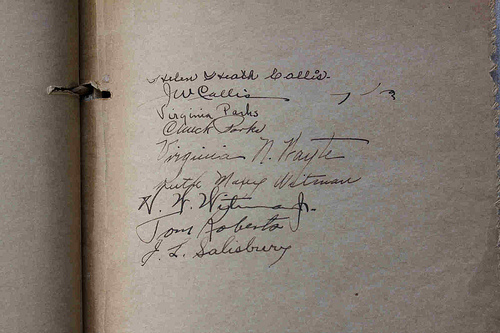 Helen Heath Callis.
JW Callis
Virginia Parks
Chuck Parks
Virginia N. Hayte
Ruth Maxey Witman
W. W. Witman Jr.
Tom Roberts
J. L. Salisbury